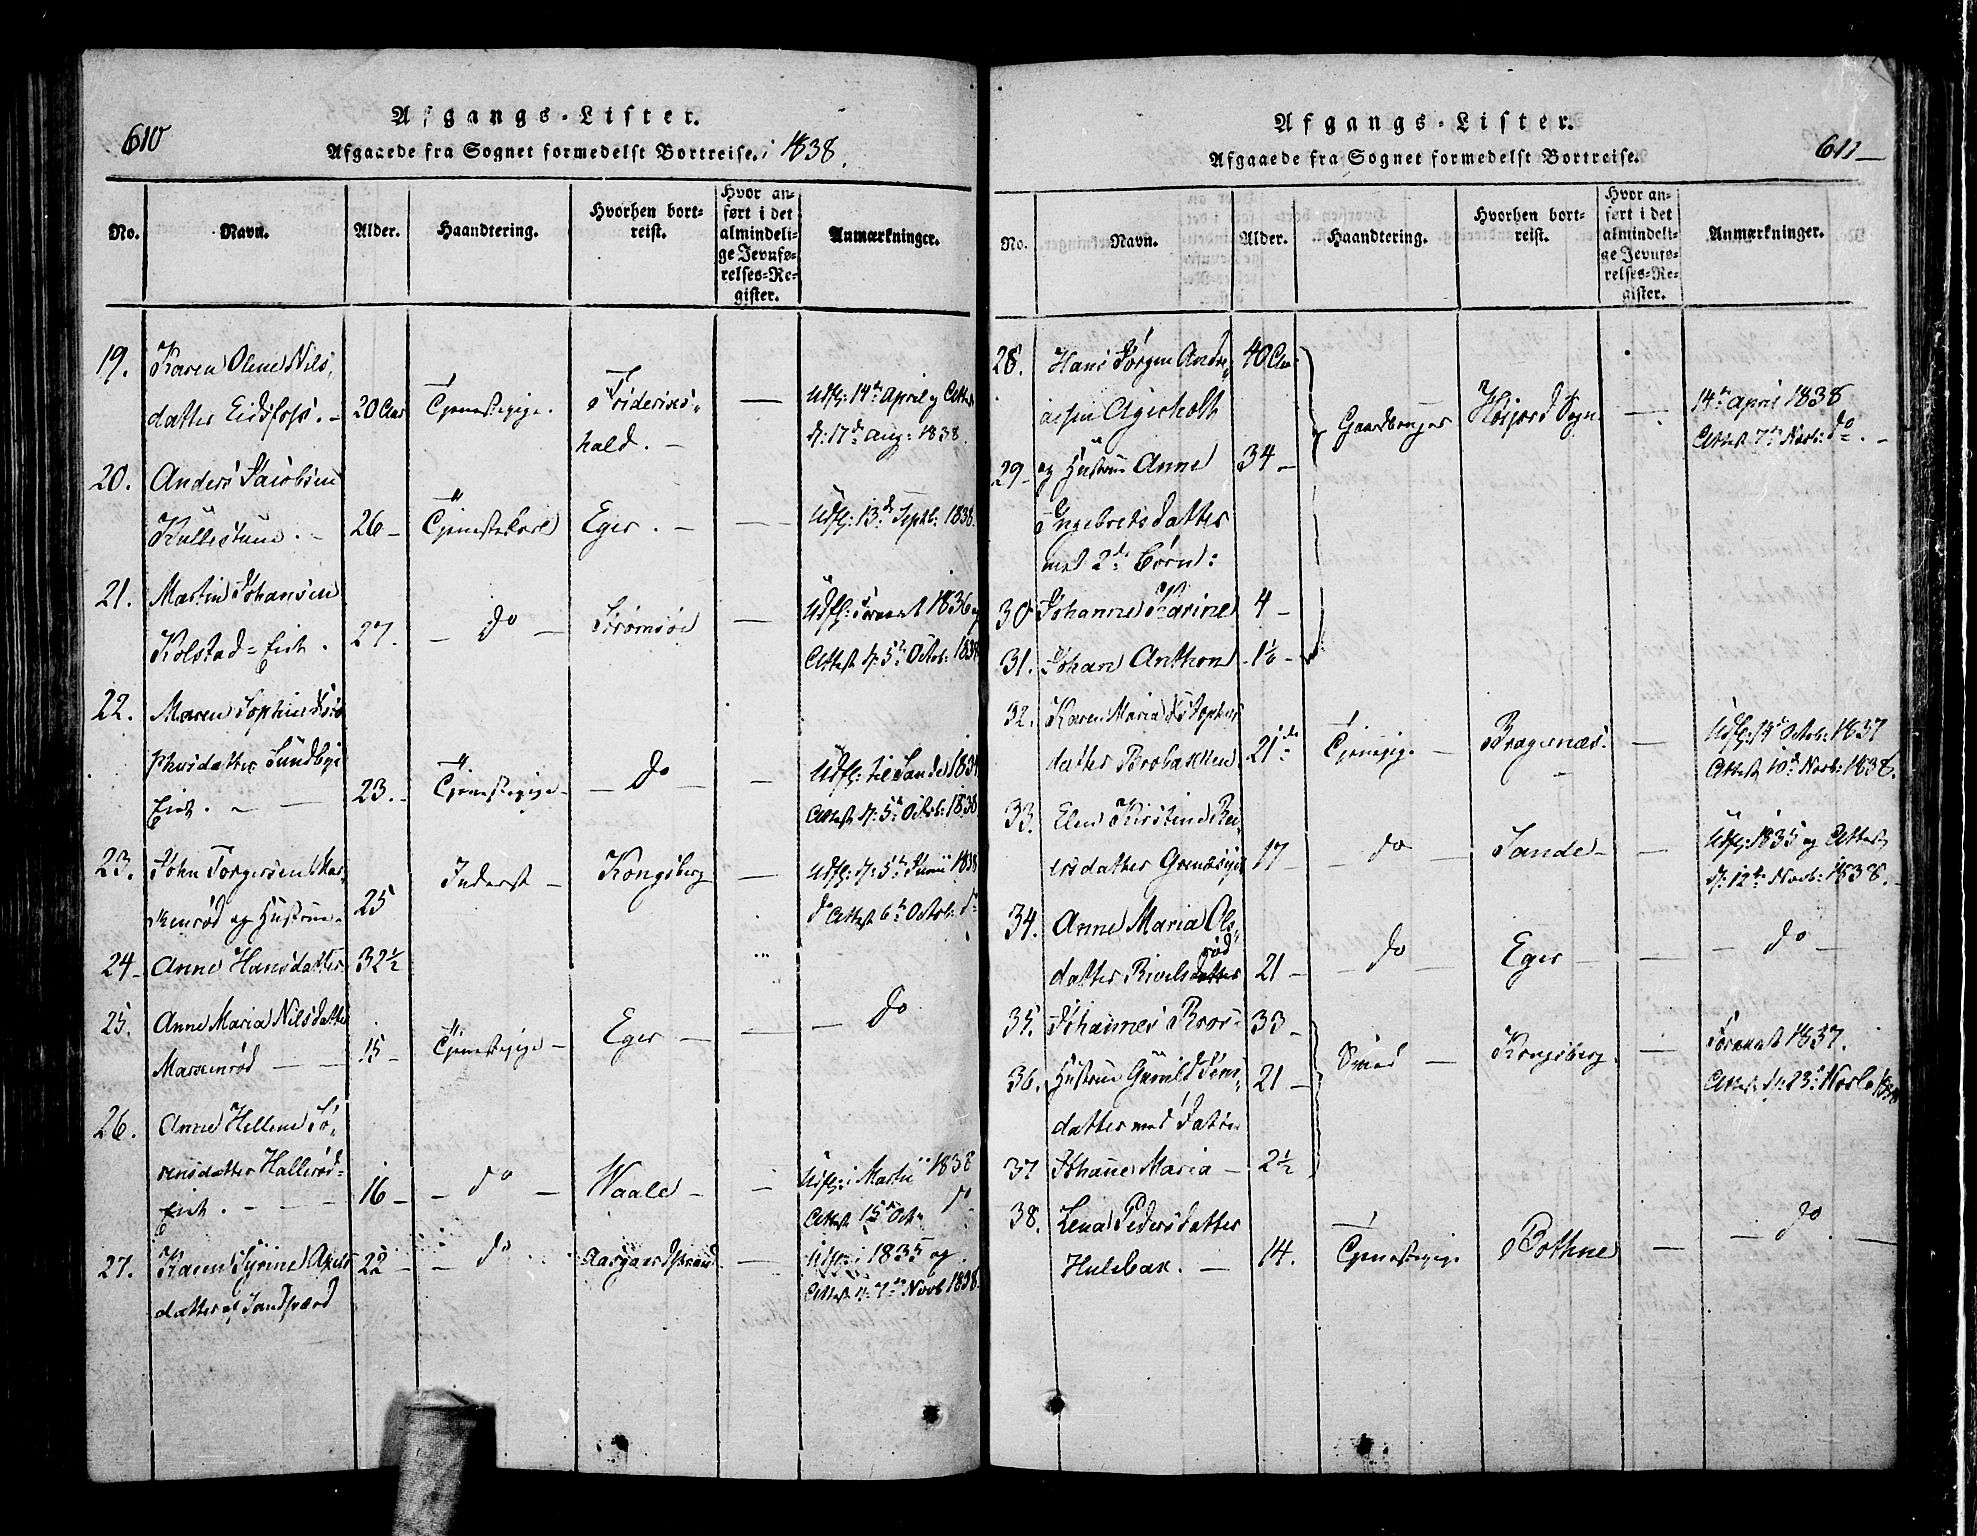 610
Afgangs-Lister.
Afgaaede fra Sognet formedelst Bortreise. i 1838.
No. Navn. Alder. Haandtering. Hvorhen bort-reist. Hvor an-ført i det almindeli-ge Jevnfø-relses-Re-gister. Anmærkninger.
19. Karen Olene Nils,
datter Eidsfoss. - 20 Aar Tjenestepige. Friderics„ — Udfl: 14de April og Attest
hald. - d: 17de Aug: 1838.
20. Anders Jacobsen
Kullestuue. - 26 - Tjenestekarl Eger. - — Udfl: 13de Septb: 1838.
21. Martin Johansen
Kolstad = Eich. 27. - do - Strømsøe — Udfl: Foraaret 1836 og
Attest d: 5te Octob: 1838
22. Maren Sophie
phersdatter Sundbye
Eich. - — 23. - Tjenestepige - - do — Udfl: til Sande 1834
Attest d: 5te Octob: 1838
23. John Torgersen
kenrød og Hustrue - 25 Inderst - Kongsberg — Udfl: d: 5te Junii 1838
do Attest 6te Octob: do
24 - Anne Hansdatter 32½
25. Anne Maria Nilsdatter
— — 15 - Tjenestepige - Eger — — — do
26. Anne Hellene Sø„
rensdatter Hallerød =
Eich. - - - 16 - - do - Waale - — Udfl: i Martii 1838
Attest 15de Oct. do
27. Karen Syrine
datter af Sandsværd 22 - - do Aasgaardstrand — Udfl: i 1835 og
Attest d: 7de Novb 1838.
611 —
Afgangs-Lister.
Afgaaede fra Sognet formedelst Bortreise.
No. Navn. Alder. Haandtering. Hvorhen bort-reist. Hvor an-ført i det almindeli-ge Jevnfø-relses-Re-gister. Anmærkninger.
28. Hans Jørgen Andre„ 40 Aar
asen Agerholt Gaardbruger Sogn — 14de April 1838
Attest 7de Novb: do. -
29 - og Hustrue Anne 34 -
Ingebretsdatter
med 2de Børn:
30 Johanne Karine 4 -
31. Johan Anthon - 1½ -
32. Karen Maria
datter Brobakken 21 Tjenepige - Bragernæs - — Udfl: 14de Octob: 1837
Attest 10de Novb: 1838.
33. Elen Kirstine
ersdatter 17 - - do - Sande - — Udfl: 1835 og Attest
d: 12te Novb: 1838.
34. Anne Maria Ols„
datter Rivelsrød 21 - - do - Eger - — - do -
35. Johannes 33 -
Smed - Kongsberg. — Foraaret 1837.
Attest d: 23de Novb. 1838
36. Hustrue Gunild Jens„ 21 -
datter med Datter
37 Johane Maria - 2½
38. Lena Pedersdatter
Hulebak. - 14. Tjenestepige Bothne — - do. —